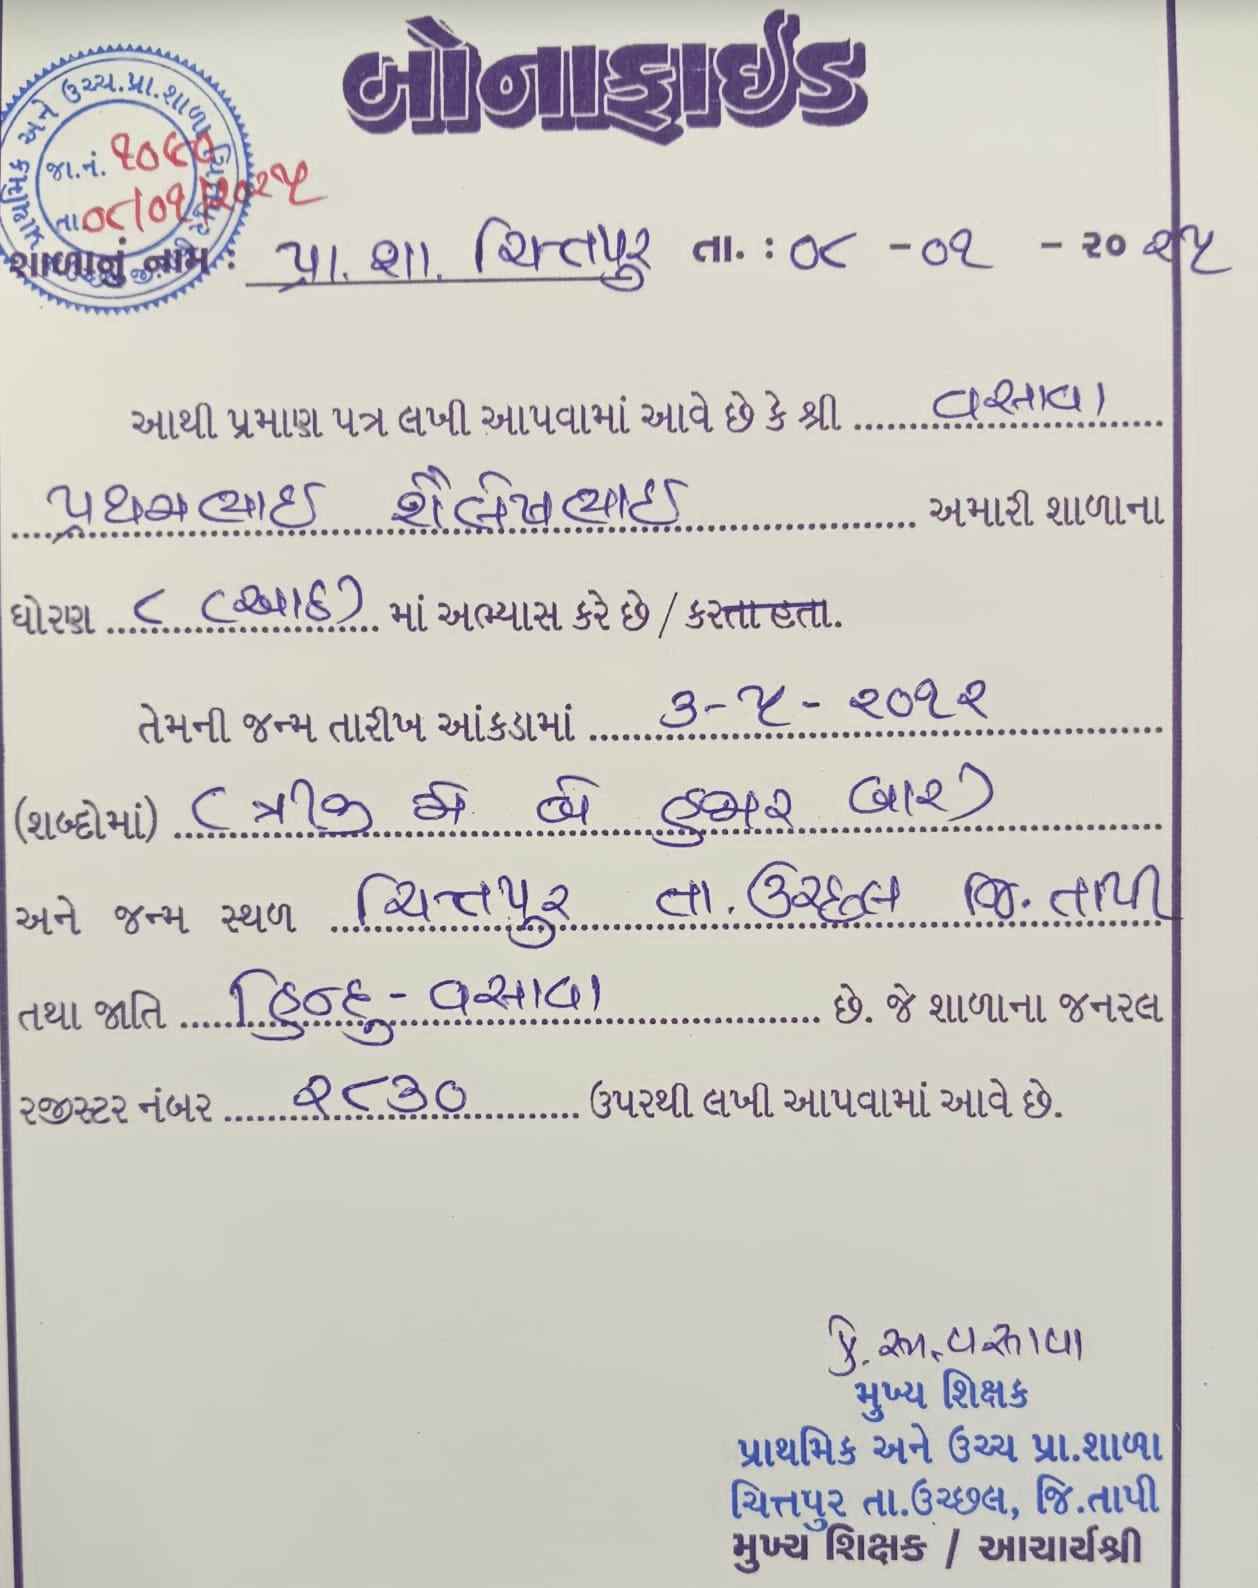 બોનાફાઈડ
પ્રાથમિક અને ઉચ્ચ.પ્રા.શાળા
જા.નં. ૧૦૯૦
તા ૦૮/૦૧/૨૦૨૫
શાળાનું નામ : પ્રા. શા. ચિત્તપુર તા. : ૦૮ - ૦૧ - ૨૦ ૨૫
આથી પ્રમાણ પત્ર લખી આપવામાં આવે છે કે શ્રી વસાવા
પ્રથમભાઈ શૈલેષભાઈ અમારી શાળાના
ધોરણ ૮ (આઠ) માં અભ્યાસ કરે છે / કરતા હતા.
તેમની જન્મ તારીખ આંકડામાં ૩-૫-૨૦૧૨
(શબ્દોમાં) (ત્રીજી મે બે હજાર બાર)
અને જન્મ સ્થળ ચિત્તપુર તા. ઉચ્છલ જિ. તાપી
તથા જાતિ હિન્દુ - વસાવા છે. જે શાળાના જનરલ
રજીસ્ટર નંબર ૨૮૩૦ ઉપરથી લખી આપવામાં આવે છે.
વસાવા
મુખ્ય શિક્ષક
પ્રાથમિક અને ઉચ્ચ પ્રા.શાળા
ચિત્તપુર તા.ઉચ્છલ, જિ.તાપી
મુખ્ય શિક્ષક / આચાર્યશ્રી